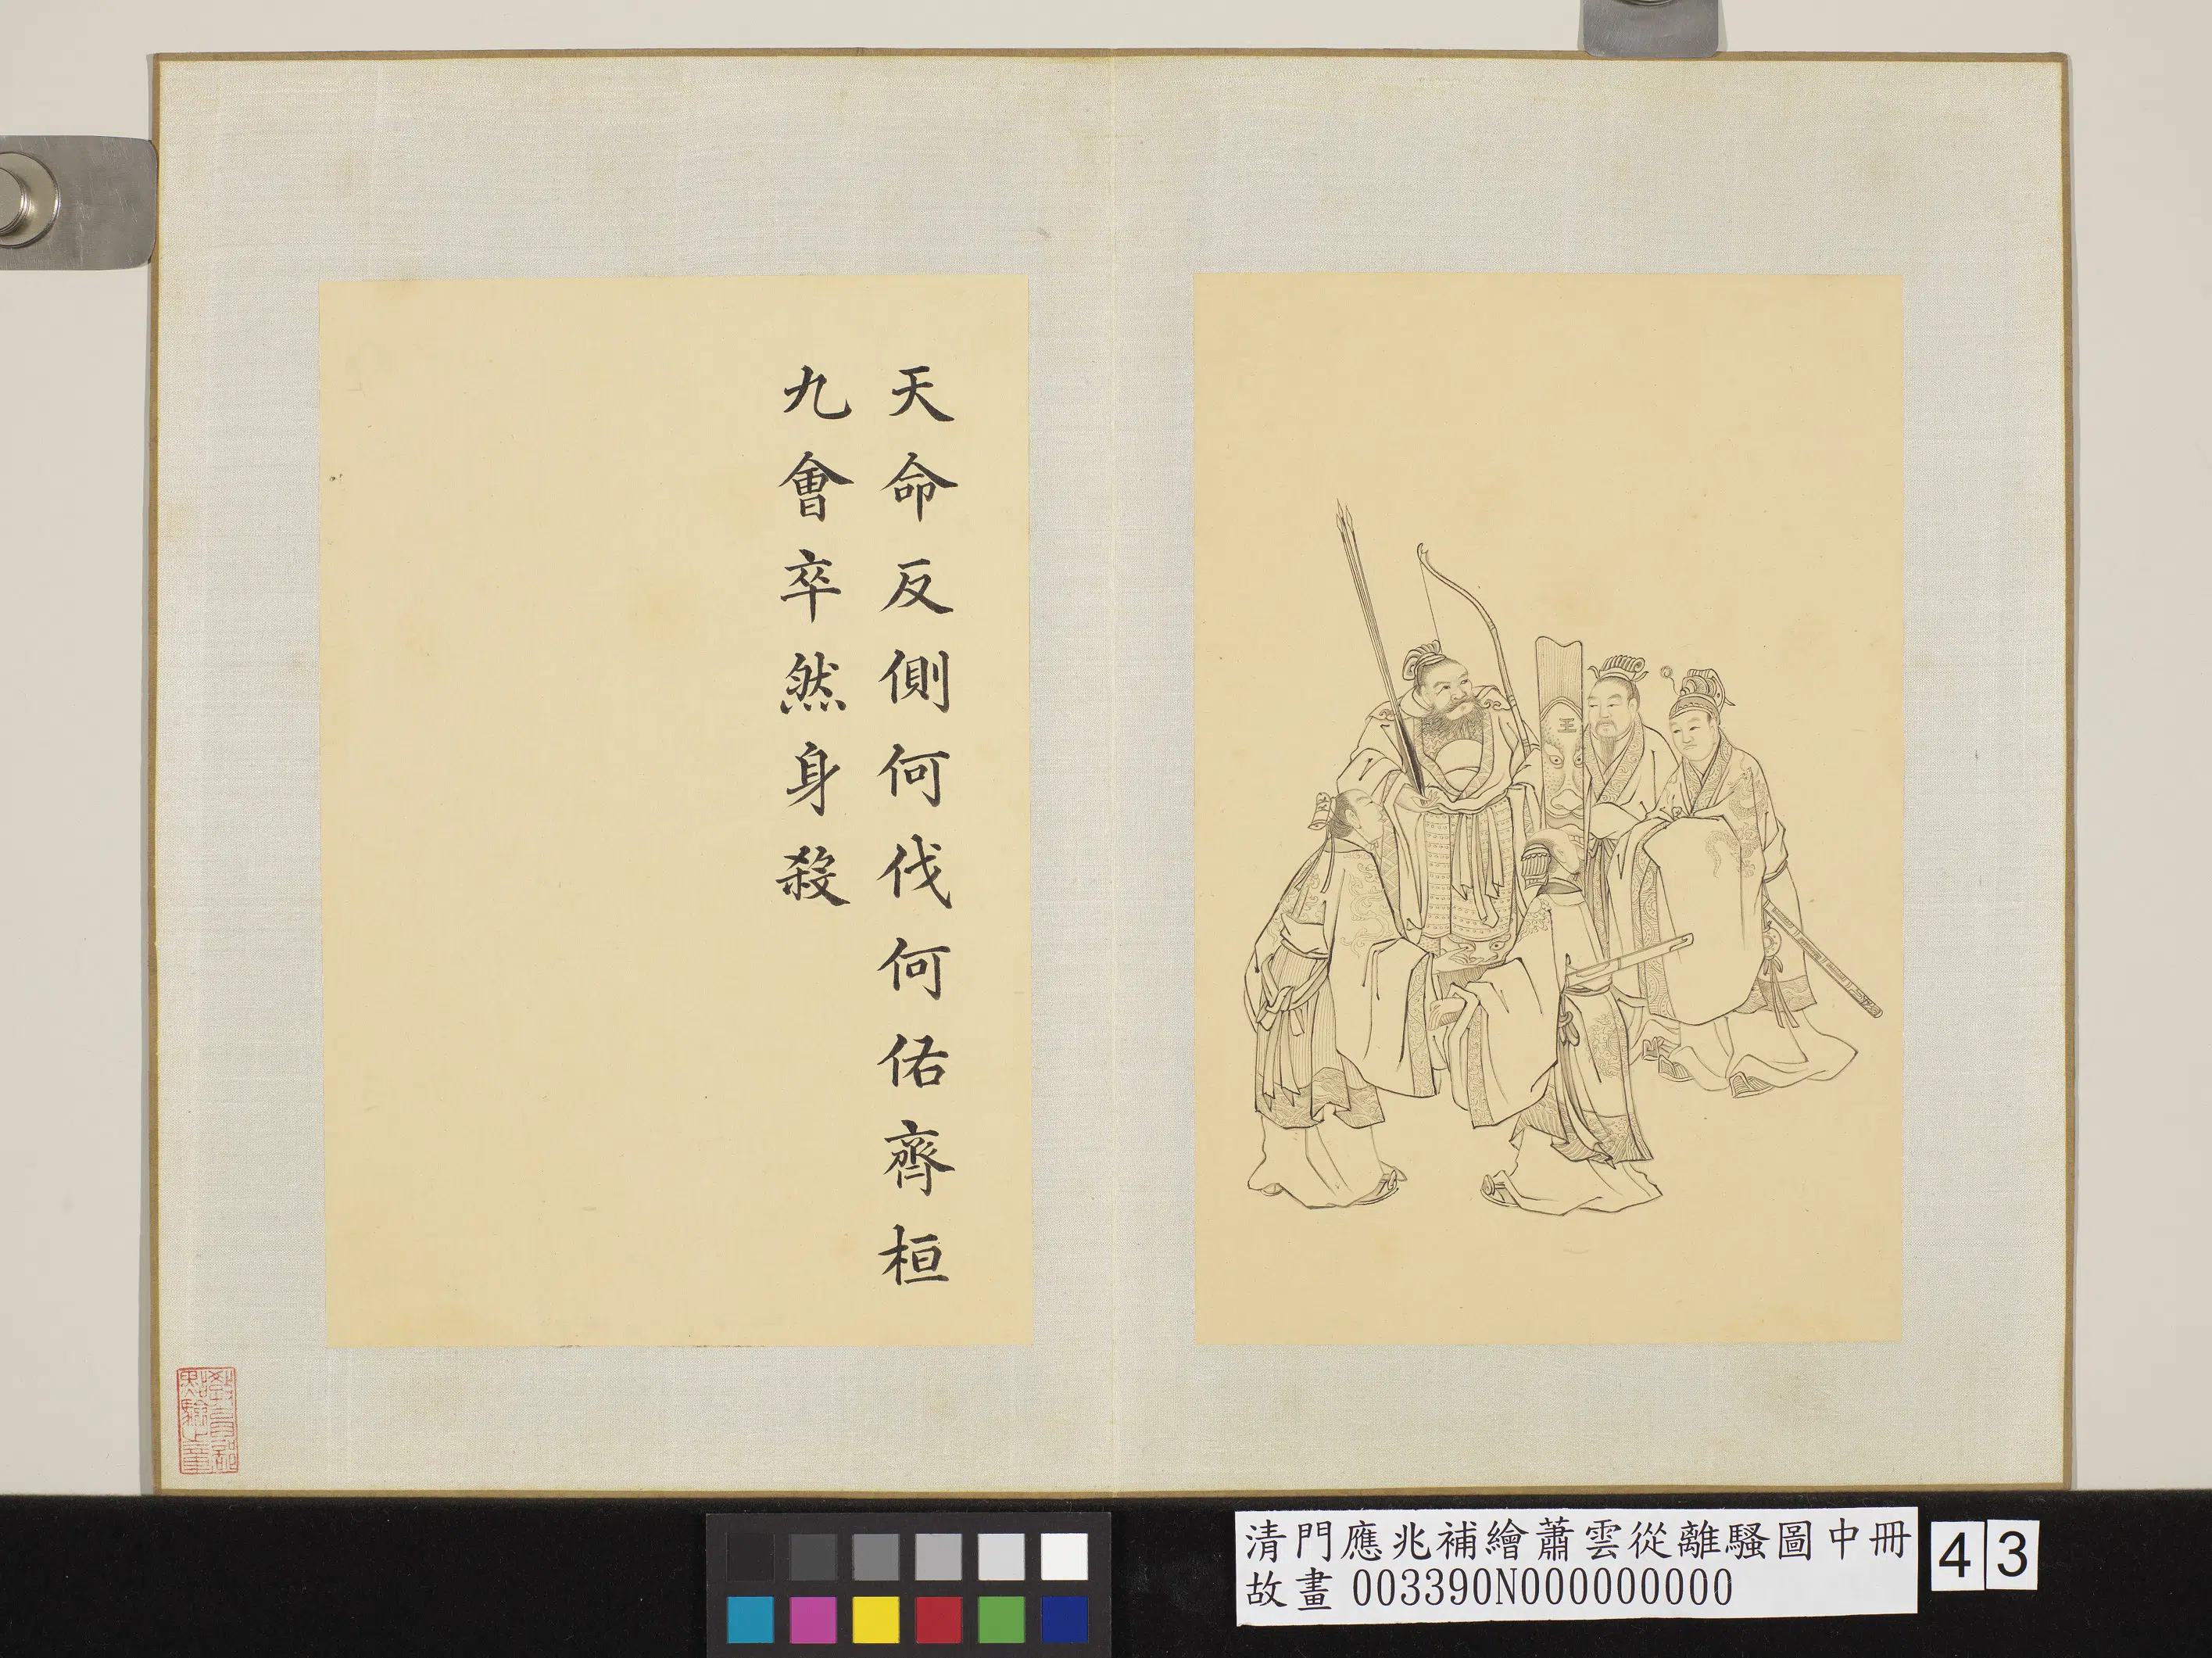 天命反側何伐何佑齊桓
九會卒然身殺
王
教育部
點驗之章
清門應兆補繪蕭雲從離騷圖中冊
故畫 003390N000000000
43